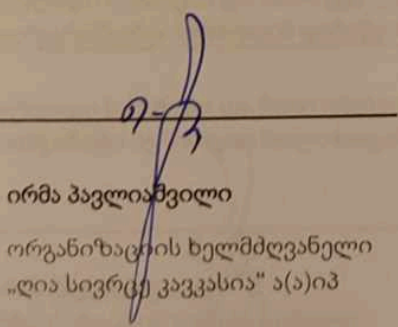 ირმა პავლიაშვილი
ორგანიზაციის ხელმძღვანელი
„ღია სივრცე კავკასია“ ა(ა)იპ